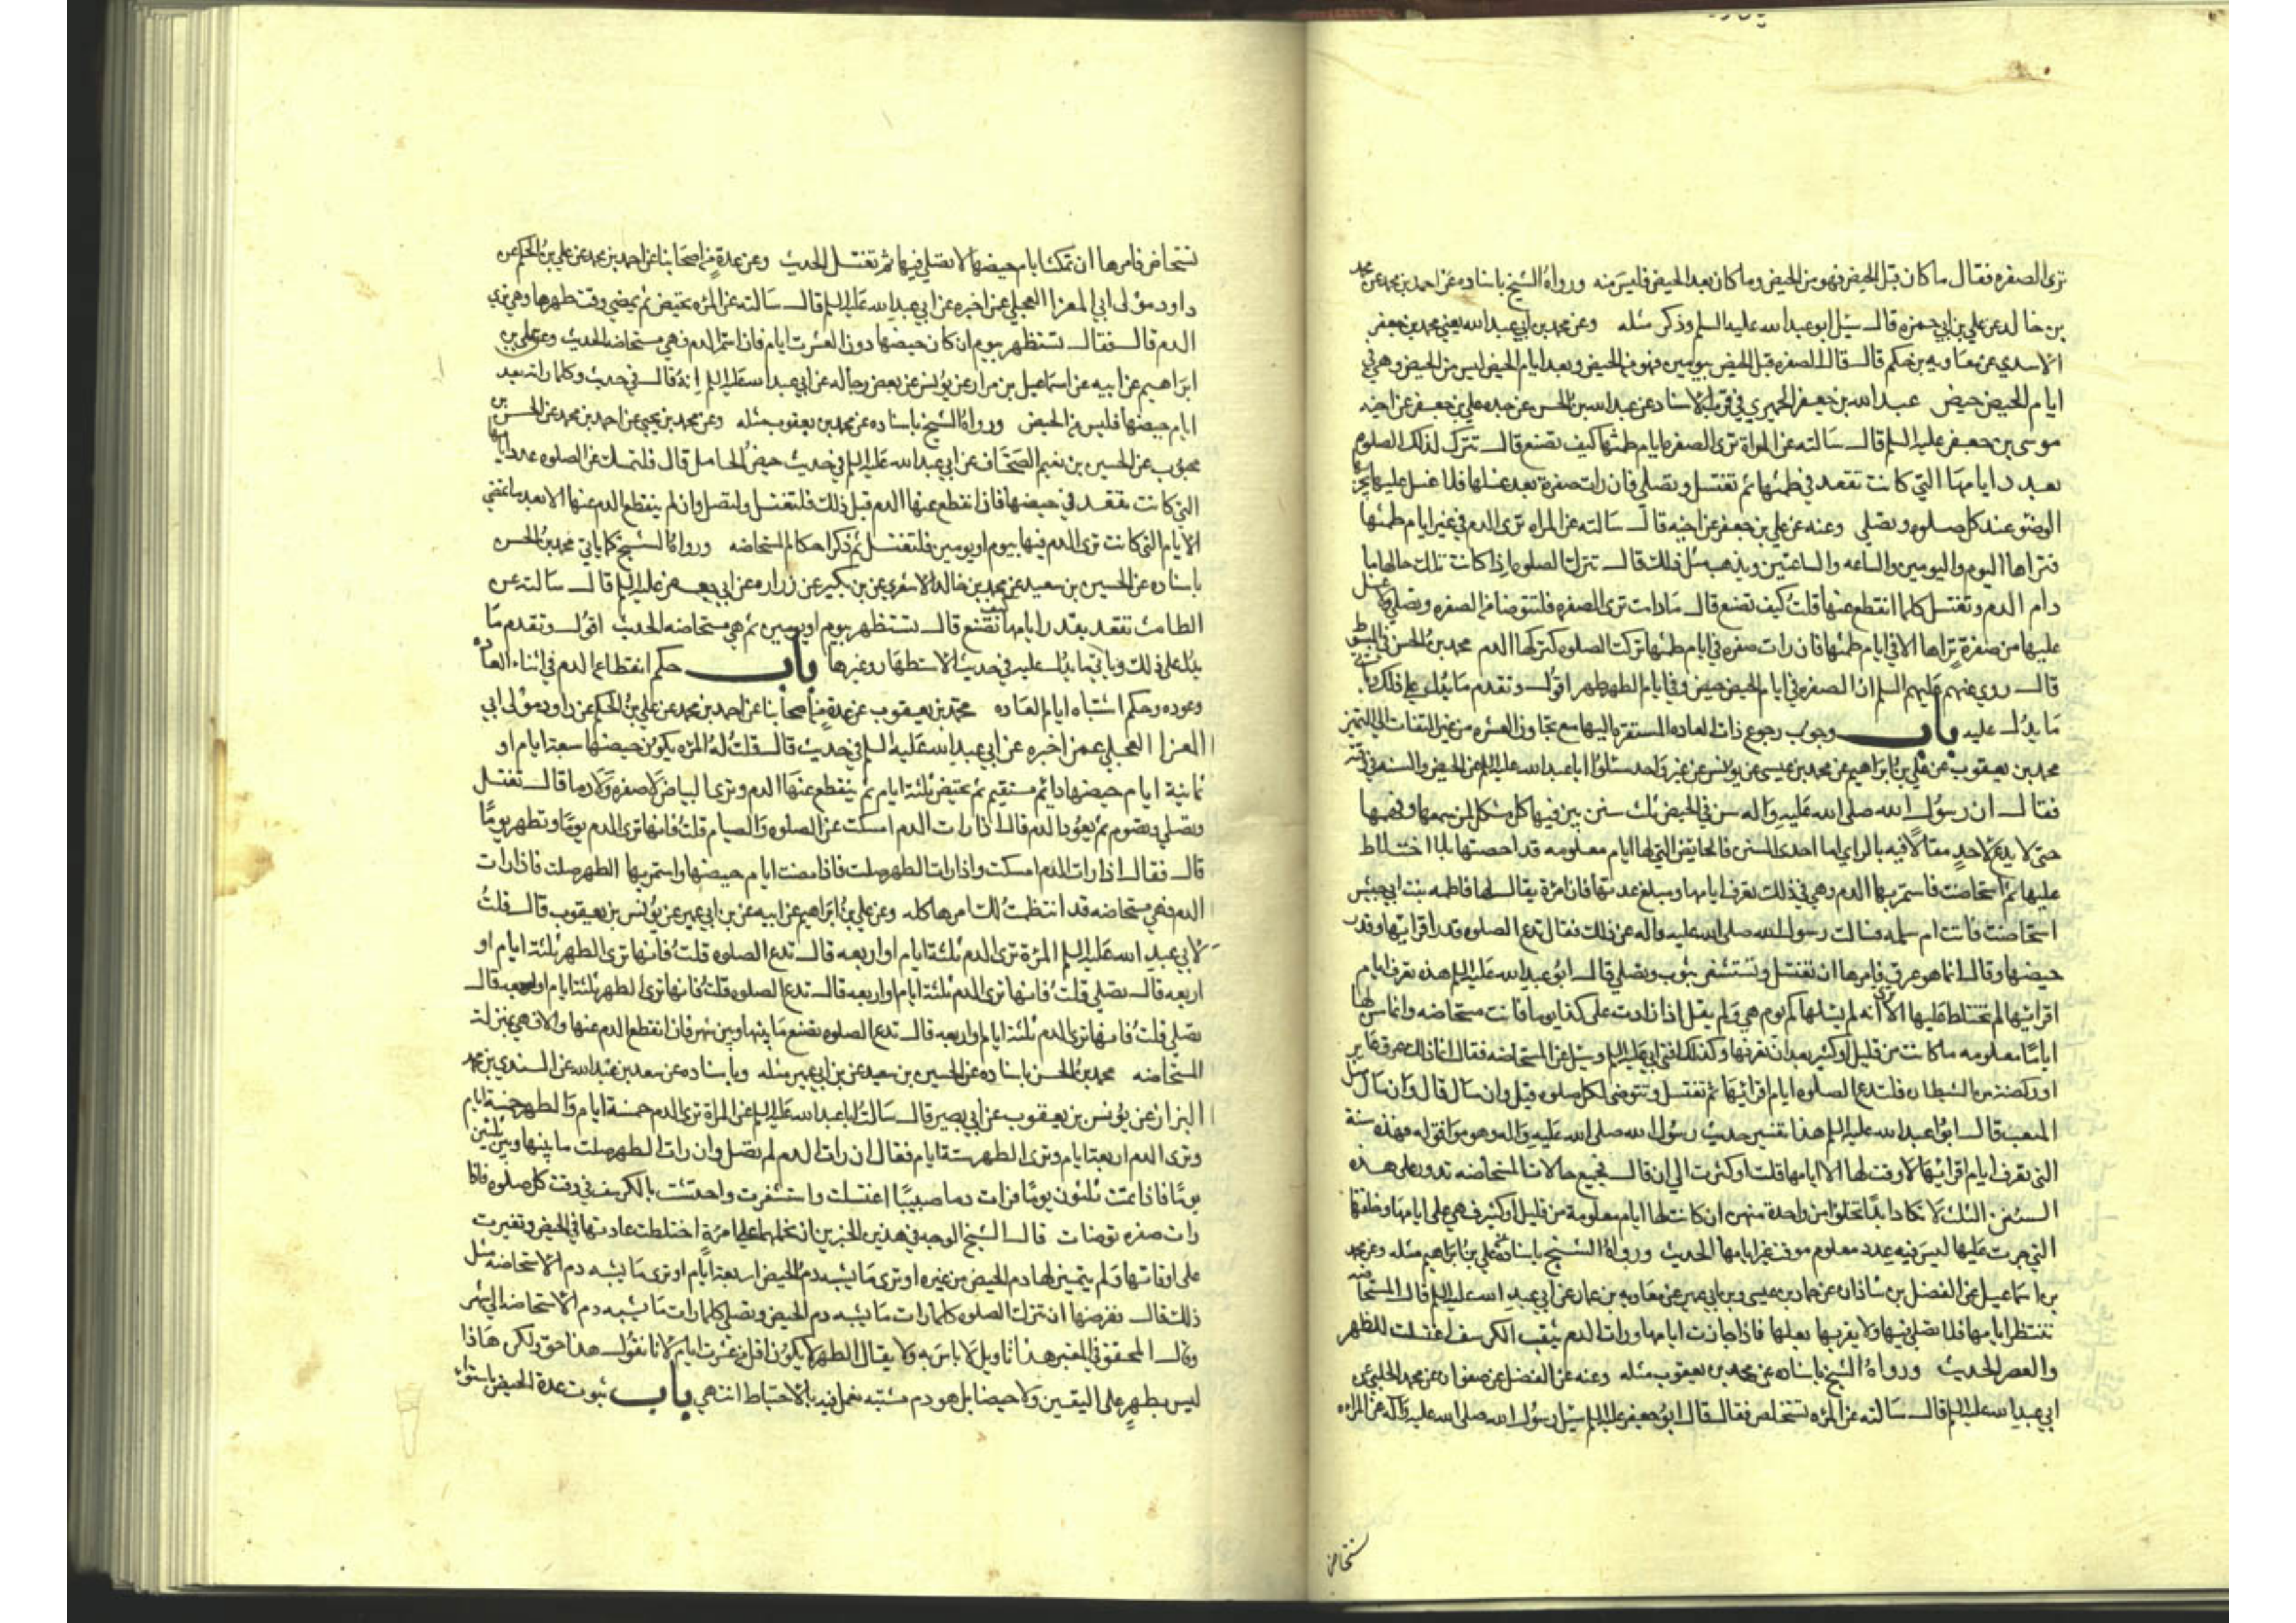 ترى الصفره فقال ما كان قبل الحيض فهو من الحيض وما كان بعد الحيض فليس منه ورواه الشيخ باسناده عن احمد بن محمد عن محمد
بن خالد عن علي بن ابي حمزه قال سئل ابو عبد الله عليه السلم وذكر مثله وعن محمد بن ابي عبد الله يعني محمد بن جعفر
الاسدي عن معاويه بن حكيم قال قال الصفره قبل الحيض بيومين فهو من الحيض وبعد ايام الحيض ليس من الحيض وهي في
ايام الحيض حيض عبد الله بن جعفر الحميري في قرب الاسناد عن عبد الله بن الحسن عن جده علي بن جعفر عن اخيه
موسى بن جعفر عليه السلم قال سالته عن المراة ترى الصفره ايام طمثها كيف تصنع قال تترك لذلك الصلوه
بعدد ايامها التي كانت تقعد في طمثها ثم تغتسل وتصلي فان رات صفرة بعد غسلها فلا غسل عليها يجزيها
الوضو عند كل صلوه وتصلي وعنه عن علي بن جعفر عن اخيه قال سالته عن المراه ترى الدم في غير ايام طمثها
فتراها اليوم واليومين والساعه والساعتين ويذهب مثل ذلك قال تترك الصلوه اذا كانت تلك حالها ما
دام الدم وتغتسل كلما انقطع عنها قلت كيف تصنع قال ما دامت ترى الصفره فلتتوضا من الصفره وتصلي ولا غسل
عليها من صفرة تراها الا في ايام طمثها فان رات صفره في ايام طمثها تركت الصلوه كتركها الدم محمد بن الحسن في المبسوط
قال روي عنهم عليهم السلم ان الصفره في ايام الحيض حيض وفي ايام الطهر طهر اقول وتقدم ما يدل على ذلك وياتي
ما يدل عليه باب وجوب رجوع ذات العاده المستقره اليها مع تجاوز العشره من غير التفات الى التميز
محمد بن يعقوب عن علي بن ابراهيم عن محمد بن عيسى عن يونس عن غير واحد سئلوا ابا عبد الله عليه السلم عن الحيض والسنه في وقته
فقال ان رسول الله صلى الله عليه واله سن في الحيض ثلث سنن بين فيها كل مشكل لمن سمعها وفهمها
حتى لا يدع لاحد مقالا فيه بالراي اما احدى السنن فالحايض التي لها ايام معلومه قد احصتها بلا اختلاط
عليها ثم استحاضت فاستمر بها الدم وهي في ذلك تعرف ايامها ومبلغ عددها فان امرة يقال لها فاطمه بنت ابي حبيش
استحاضت فاتت ام سلمه فسالت رسول الله صلى الله عليه واله عن ذلك فقال تدع الصلوه قدر اقرائها وقدر
حيضها وقال انما هو عرق فامرها ان تغتسل وتستثفر بثوب وتصلي قال ابو عبد الله عليه السلم هذه تعرف ايام
اقرائها لم تختلط عليها الا ترى انه لم يسلها كم يوم هي ولم يقل اذا زادت على كذا يوما فانت مستحاضه وانما سن لها
اياما معلومه ما كانت من قليل او كثير بعد ان تعرفها وكذلك افتى ابي عليه السلم وسئل عن المستحاضه فقال انما ذلك عرق عابر
او ركضة من الشيطان فلتدع الصلوه ايام اقرائها ثم تغتسل وتتوضى لكل صلوه قيل وان سال قال وان سال مثل
المثعب قال ابو عبد الله عليه السلم هذا تفسير حديث رسول الله صلى الله عليه واله وهو موافق له فهذه سنة
التي تعرف ايام اقرائها لا وقت لها الا ايامها قلت او كثرت الى ان قال فجميع حالات المستحاضه تدور على هذه
السنن الثلث لا تكاد ابدا تخلو من واحدة منهن ان كانت لها ايام معلومة من قليل او كثير فهي على ايامها وخلقتها
التي جرت عليها ليس فيه عدد معلوم موقت غير ايامها الحديث ورواه الشيخ باسناده عن علي بن ابراهيم مثله وعن محمد
بن اسماعيل عن الفضل بن شاذان عن حماد بن عيسى وبن ابي عمير عن معاويه بن عمار عن ابي عبد الله عليه السلم قال المستحاضه
تنتظر ايامها فلا تصلي فيها ولا يقربها بعلها فاذا جازت ايامها ورات الدم يثقب الكرسف اغتسلت للظهر
والعصر الحديث ورواه الشيخ باسناده عن محمد بن يعقوب مثله وعنه عن الفضل عن صفوان عن محمد الحلبي عن
ابي عبد الله عليه السلم قال سالته عن المره تستحاض فقال قال ابو جعفر عليه السلم سئل رسول الله صلى الله عليه واله عن المراه
تستحاض
تستحاض فامرها ان تمكث ايام حيضها لا تصلي فيها ثم تغتسل الحديث وعن عدة من اصحابنا عن احمد بن محمد عن علي بن الحكم عن
داود مولى ابي المعزا العجلي عمن اخبره عن ابي عبد الله عليه السلم قال سالته عن المره تحيض ثم يمضي وقت طهرها وهي ترى
الدم قال فقال تستظهر بيوم ان كان حيضها دون العشرة ايام فان استمر الدم فهي مستحاضه الحديث وعن علي بن
ابراهيم عن ابيه عن اسماعيل بن مرار عن يونس عن بعض رجاله عن ابي عبد الله عليه السلم انه قال في حديث وكلما راته بعد
ايام حيضها فليس من الحيض ورواه الشيخ باسناده عن محمد بن يعقوب مثله وعن محمد بن يحيى عن احمد بن محمد عن الحسن بن
محبوب عن الحسين بن نعيم الصحاف عن ابي عبد الله عليه السلم في حديث حيض الحامل قال فلتمسك عن الصلوه عدد ايامها
التي كانت تقعد في حيضها فاذا انقطع عنها الدم قبل ذلك فلتغتسل ولتصل وان لم ينقطع الدم عنها الا بعد ما تمضي
الايام التي كانت ترى الدم فيها بيوم او يومين فلتغتسل ثم ذكر احكام المستحاضه ورواه الشيخ كما ياتي محمد بن الحسن
باسناده عن الحسين بن سعيد عن محمد بن خالد الاشعري عن بن بكير عن زراره عن ابي جعفر عليه السلم قال سالته عن
الطامث تقعد بقدر ايامها كيف تصنع قال تستظهر بيوم او يومين ثم هي مستحاضه الحديث اقول وتقدم ما
يدل على ذلك وياتي ما يدل عليه في حديث الاستظهار وغيرها باب حكم انقطاع الدم في اثناء العاده
وعوده وحكم اشتباه ايام العاده محمد بن يعقوب عن عدة من اصحابنا عن احمد بن محمد عن علي بن الحكم عن داود مولى ابي
المعزا العجلي عمن اخبره عن ابي عبد الله عليه السلم في حديث قال قلت له المره يكون حيضها سبعة ايام او
ثمانية ايام حيضها دائم مستقيم ثم تحيض ثلثة ايام ثم ينقطع عنها الدم وترى البياض لا صفره ولا دما قال تغتسل
وتصلي وتصوم ثم يعود الدم قال اذا رات الدم امسكت عن الصلوه والصيام قلت فانها ترى الدم يوما وتطهر يوما
قال فقال اذا رات الدم امسكت واذا رات الطهر صلت فاذا مضت ايام حيضها واستمر بها الطهر صلت فاذا رات
الدم فهي مستحاضه قد انتظمت لك امرها كله وعن علي بن ابراهيم عن ابيه عن بن ابي عمير عن يونس بن يعقوب قال قلت
لابي عبد الله عليه السلم المرة ترى الدم ثلثة ايام او اربعه قال تدع الصلوه قلت فانها ترى الطهر ثلثة ايام او
اربعه قال تصلي قلت فانها ترى الدم ثلثة ايام او اربعه قال تدع الصلوه قلت فانها ترى الطهر ثلثة ايام او اربعه قال
تصلي قلت فانها ترى الدم ثلثة ايام او اربعه قال تدع الصلوه تصنع ما بينها وبين شهر فان انقطع الدم عنها والا فهي بمنزلة
المستحاضه محمد بن الحسن باسناده عن الحسين بن سعيد عن بن ابي عمير مثله وباسناده عن سعد بن عبد الله عن السندي بن محمد
البزاز عن يونس بن يعقوب عن ابي بصير قال سالت ابا عبد الله عليه السلم عن المراة ترى الدم خمسة ايام والطهر خمسة ايام
وترى الدم اربعة ايام وترى الطهر ستة ايام فقال ان رات الدم لم تصل وان رات الطهر صلت ما بينها وبين ثلثين
يوما فاذا تمت ثلثون يوما فرات دما صبيبا اغتسلت واستثفرت واحتشت بالكرسف في وقت كل صلوه فاذا
رات صفره توضات قال الشيخ الوجه في هذين الخبرين ان نحملهما على امرة اختلطت عادتها في الحيض وتغيرت
على اوقاتها ولم يتميز لها دم الحيض من غيره او ترى ما يشبه دم الحيض اربعة ايام او ترى ما يشبه دم الاستحاضه مثل
ذلك قال ففرضها ان تترك الصلوه كلما رات ما يشبه دم الحيض وتصلي كلما رات ما يشبه دم الاستحاضه الى شهر
وقال المحقق في المعتبر هذا تاويل لا باس به ولا يقال الطهر لا يكون اقل من عشرة ايام لانا نقول هذا حق ولكن هذا
ليس بطهر على اليقين ولا حيضا بل هو دم مشتبه نعمل فيه بالاحتياط انتهى باب ثبوت عدة الحيض باستواء